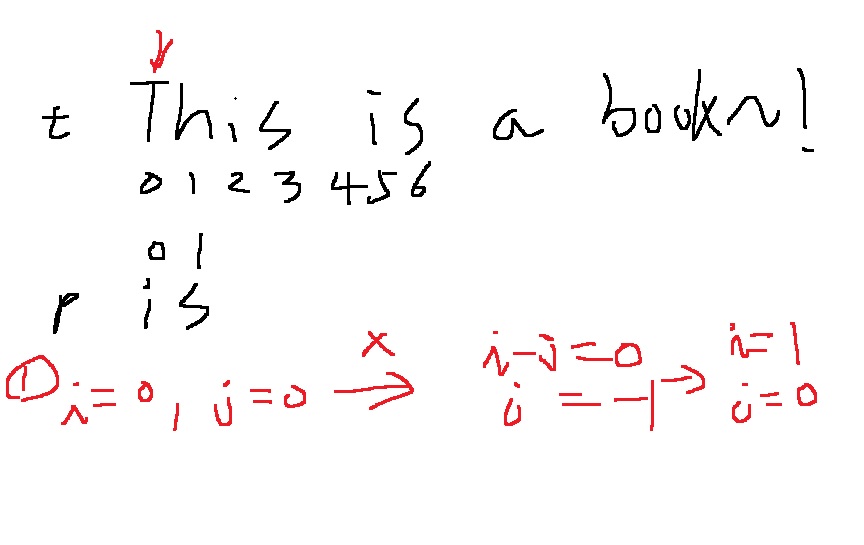 t This is a book~!
0 1 2 3 4 5 6
0 1
p is
x i-j=0 i=1
① i=0, j=0 → j=-1 → j=0